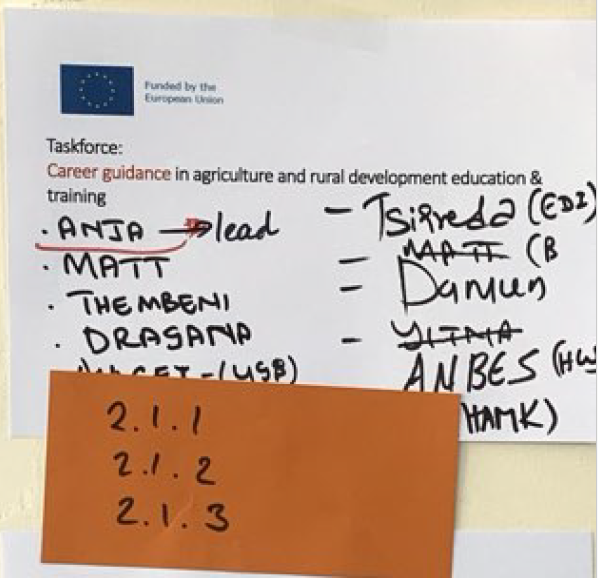 Funded by the
European Union
Taskforce:
Career guidance in agriculture and rural development education &
training
· ANJA → lead
· MATT
· THEMBENI
· DRAGANA
-(USB)
- Tsigreda (EDI)
- MATT (B
- Damun
- YITNA
ANBES (HW
HAMK)
2.1.1
2.1.2
2.1.3